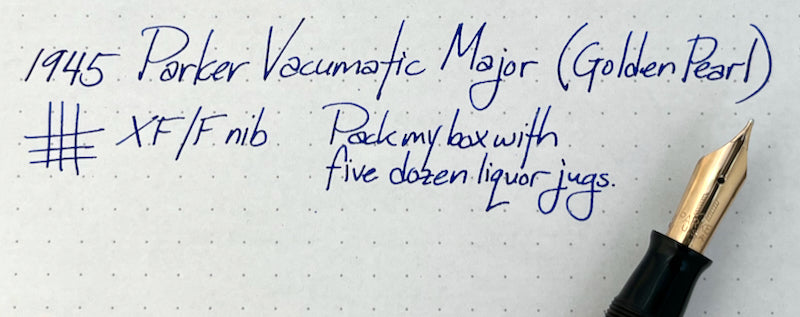 1945 Parker Vacumatic Major (Golden Pearl)
XF/F nib
Pack my box with
five dozen liquor jugs.